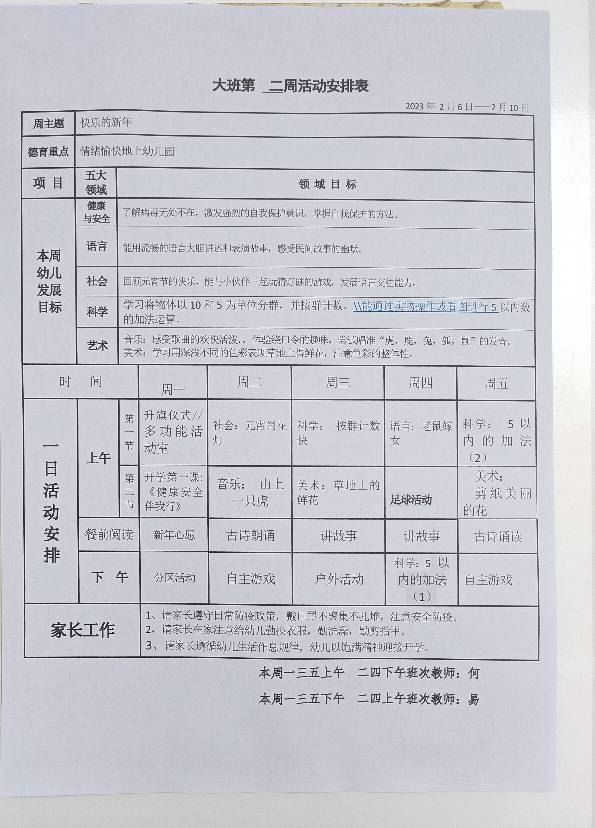 大班第 二周活动安排表
2023 年 2 月 6 日——2 月 10 日
周主题 快乐的新年
德育重点 情绪愉快地上幼儿园
项 目 五大领域 领 域 目 标
本周幼儿发展目标
健康与安全 了解病毒无处不在，激发强烈的自我保护意识，掌握自我保护的方法。
语言 能用流畅的语言大胆讲述和表演故事，感受民间故事的幽默。
社会 回顾元宵节的快乐，能与小伙伴一起玩猜灯谜的游戏，发展语言交往能力。
科学 学习将物体以 10 和 5 为单位分群，并按群计数。\\能通过实物操作或看图进行 5 以内数
的加法运算。
艺术 音乐：感受歌曲的欢快活泼，，体验绕口令的趣味，尝试唱准“虎，鹿，兔，狐，鼠”的发音。
美术：学习用深浅不同的色彩表现草地上得鲜花，注意色彩的整体性。
时 间 周一 周二 周三 周四 周五
一日活动安排
上午
第一节 升旗仪式//多功能活动室 社会：元宵闹花灯 科学： 按群计数快 语言：老鼠嫁女 科学： 5 以内的加法（2）
第二节 开学第一课:《健康安全伴我行》 音乐： 山上一只虎 美术：草地上的鲜花 足球活动 美术：剪纸美丽的花
餐前阅读 新年心愿 古诗朗诵 讲故事 讲故事 古诗诵读
下 午 分区活动 自主游戏 户外活动 科学：5 以内的加法（1） 自主游戏
家长工作
1、请家长遵守日常防疫政策，戴口罩不聚集不扎堆，注意安全防疫。
2、请家长在家注意给幼儿勤换衣服，勤洗澡，勤剪指甲。
3、请家长遵循幼儿生活作息规律，幼儿以饱满精神迎接开学。
本周一三五上午 二四下午班次教师：何
本周一三五下午 二四上午班次教师：易